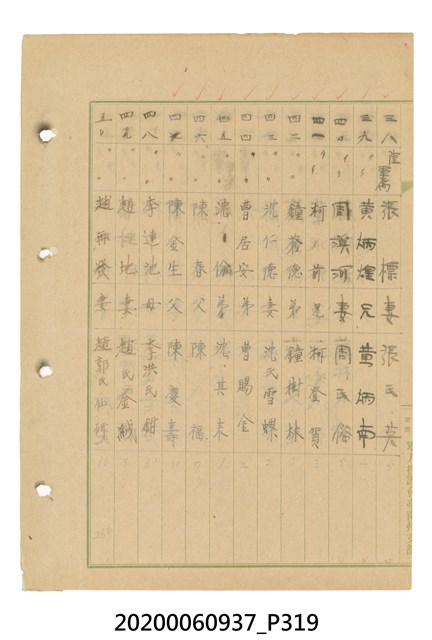 三八 陸軍 張標妻 張氏英
三九 〃 〃 黃炳煌兄 黃炳南
四〇 〃 〃 周漢河妻 周氏俗
四一 〃 〃 柯 兄 柯登賀
四二 〃 〃 鐘蒼德弟 鐘樹林
四三 〃 〃 沈仁德妻 沈氏雪螺
四四 〃 〃 曹居安弟 曹賜金
四五 〃 〃 沈偷弟 沈其末
四六 〃 〃 陳春父 陳福
四七 〃 〃 陳金生父 陳慶壽
四八 〃 〃 李連池母 李洪氏鉗
四九 〃 〃 趙 地妻 趙氏金絨
五〇 〃 〃 趙 發妻 趙郭氏仙
20200060937_P319